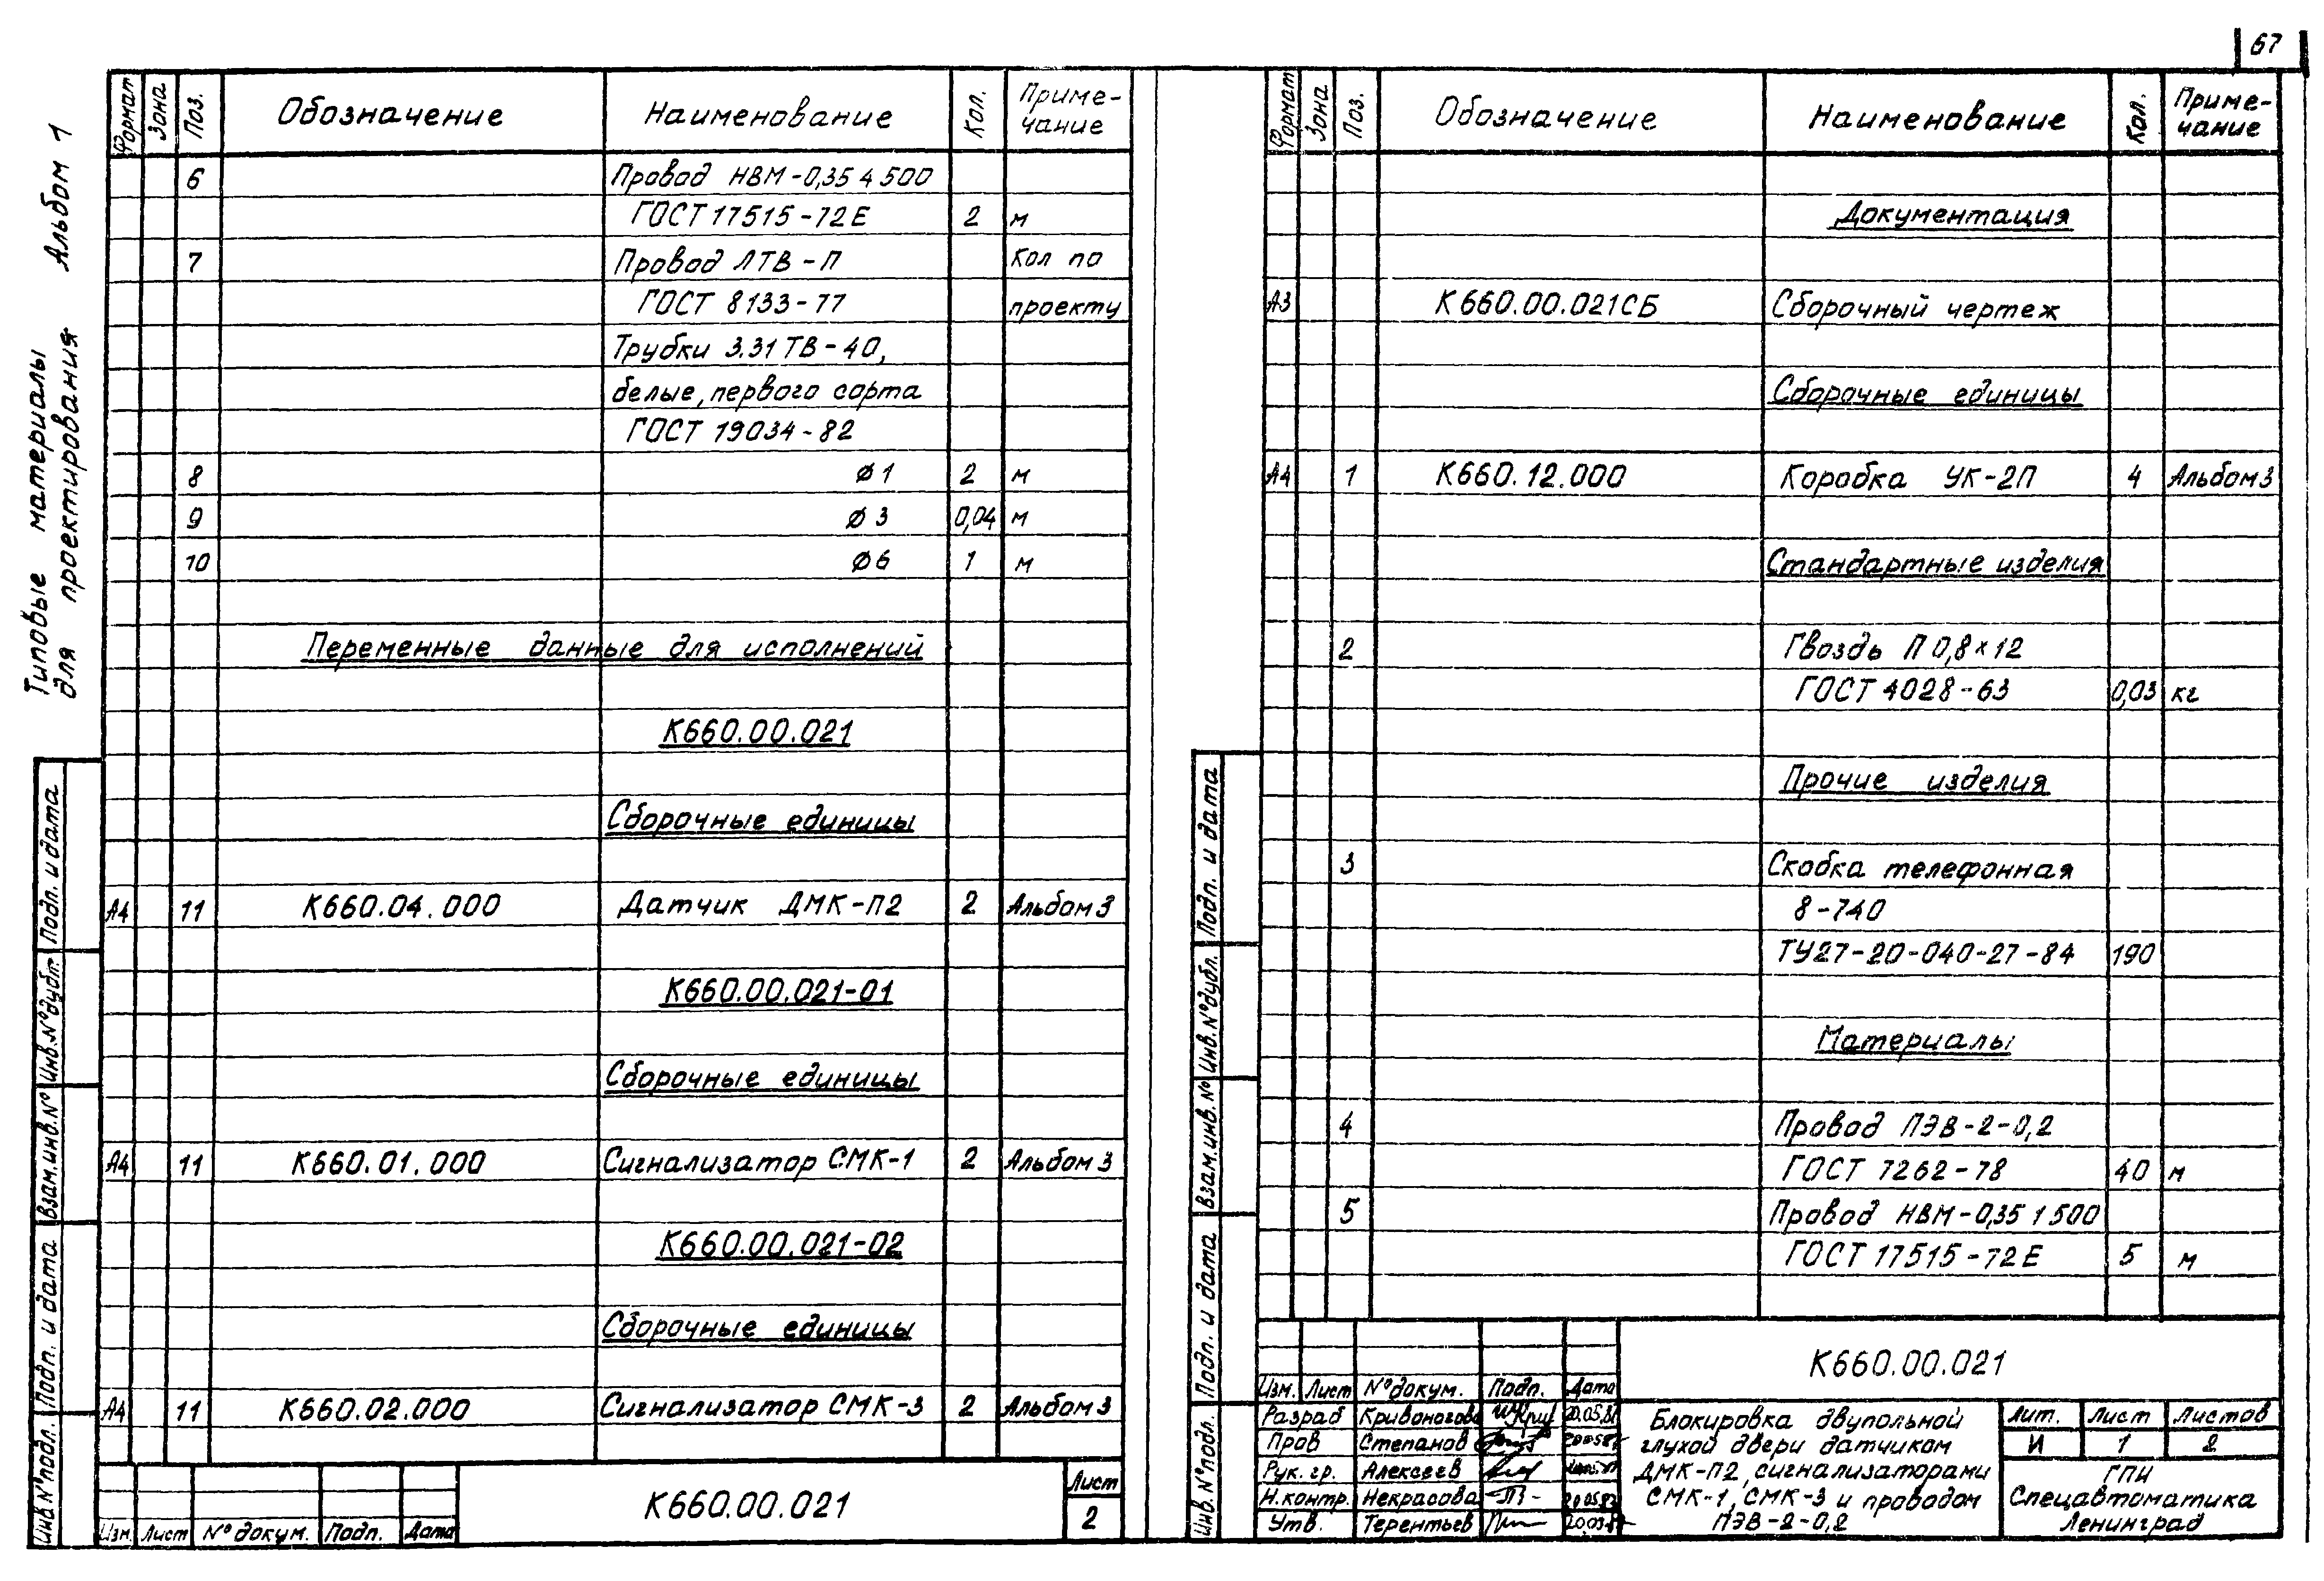 67
Типовые материалы
для проектирования Альбом 1
Формат Зона Поз. Обозначение Наименование Кол. Приме-
чание
6 Провод НВМ-0,35 4 500
ГОСТ 17515-72Е 2 м
7 Провод ЛТВ-П Кол по
ГОСТ 8133-77 проекту
Трубки 3.31 ТВ-40,
белые, первого сорта
ГОСТ 19034-82
8 Ø1 2 м
9 Ø3 0,04 м
10 Ø6 1 м
Переменные данные для исполнений
К660.00.021
Сборочные единицы
А4 11 К660.04.000 Датчик ДМК-П2 2 Альбом 3
К660.00.021-01
Сборочные единицы
А4 11 К660.01.000 Сигнализатор СМК-1 2 Альбом 3
К660.00.021-02
Сборочные единицы
А4 11 К660.02.000 Сигнализатор СМК-3 2 Альбом 3
Подп. и дата
Инв.№дубл.
Взам.инв.№
Подп. и дата
Инв №подл.
Изм. Лист №докум. Подп. Дата
К660.00.021
Лист
2
Формат Зона Поз. Обозначение Наименование Кол. Приме-
чание
Документация
А3 К660.00.021СБ Сборочный чертеж
Сборочные единицы
А4 1 К660.12.000 Коробка УК-2П 4 Альбом 3
Стандартные изделия
2 Гвоздь П 0,8×12
ГОСТ 4028-63 0,03 кг
Прочие изделия
3 Скобка телефонная
8-740
ТУ27-20-040-27-84 190
Материалы
4 Провод ПЭВ-2-0,2
ГОСТ 7262-78 40 м
5 Провод НВМ-0,35 1 500
ГОСТ 17515-72Е 5 м
Подп. и дата
Инв.№дубл.
Взам.инв.№
Подп. и дата
Инв.№подл.
К660.00.021
Изм. Лист №докум. Подп. Дата
Разраб Кривоногова
Пров Степанов
Рук. гр. Алексеев
Н.контр. Некрасова
Утв. Терентьев
Блокировка двупольной
глухой двери датчиком
ДМК-П2, сигнализаторами
СМК-1, СМК-3 и проводом
ПЭВ-2-0,2
Лит. Лист Листов
И 1 2
ГПИ
Спецавтоматика
Ленинград